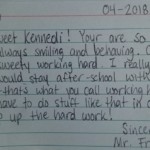 04-2018
weet Kennedi! Your are so
lways smiling and behaving.
sweety working hard. I really
ould stay after-school with
that's what you call working h
ave to do stuff like that in o
up the hard work!
Sincer
Mr. Fr